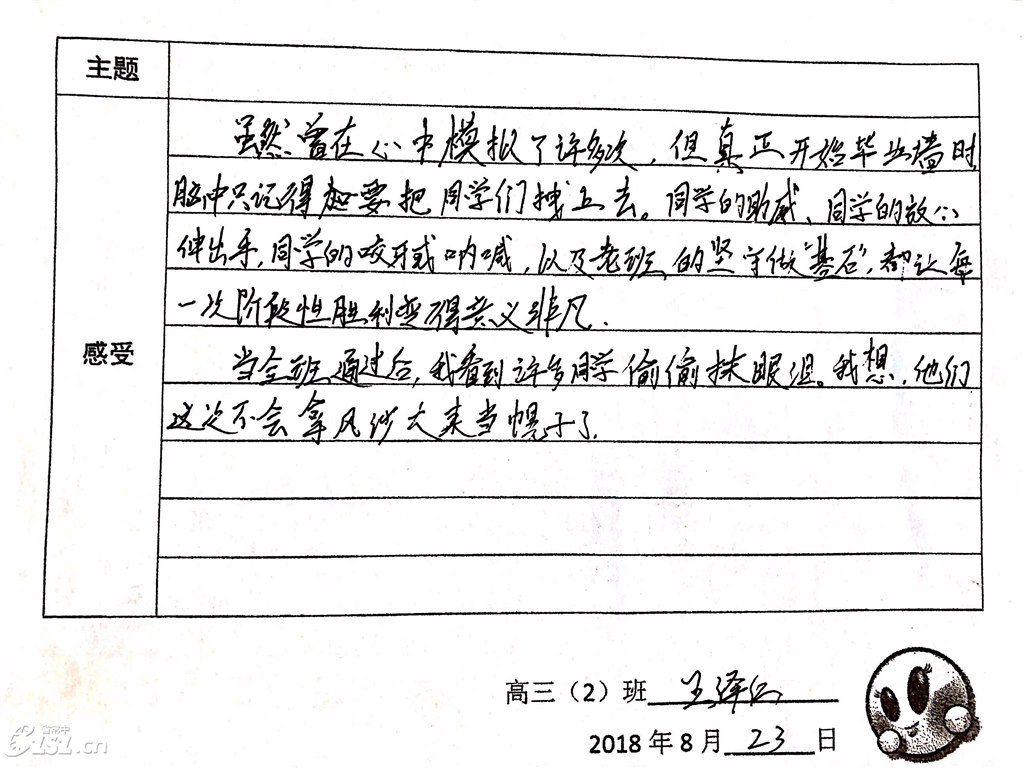 主题
虽然曾在心中模拟了许多次，但真正开始毕业墙时，
脑中只记得要把同学们拽上去。同学的助威、同学的放心
伸出手，同学的咬牙或呐喊，以及老班的坚守做“基石”，都让每
一次阶段性胜利变得意义非凡.
感受
当全班通过后，我看到许多同学偷偷抹眼泪。我想，他们
这次不会拿风沙大来当幌子了.
高三（2）班 王泽
2018年8月 23 日
.cn